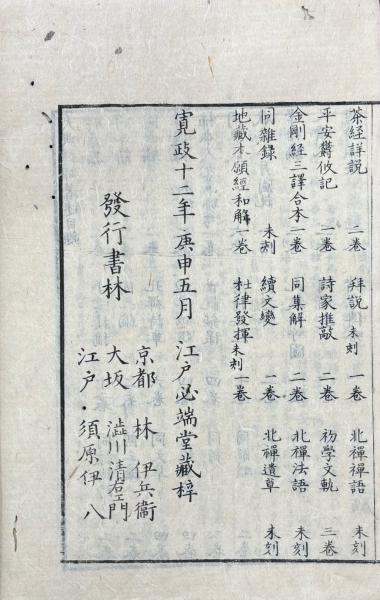 茶経詳説 二卷 拜説 未刻 一卷 北禪禪語 未刻
平安舊攸記 一卷 詩家推敲 二卷 初學文軌 三卷
金剛経三譯合本 一卷 同集解 二卷 北禪法語 未刻
同雜録 未刻 續文變 一卷 北禪遺草 未刻
地藏本願經和解 一卷 杜律發揮 未刻 一卷
寛政十二年庚申五月 江戸必端堂藏梓
發行書林
京都 林 伊兵衞
大坂 澁川清右エ門
江戸・須原伊八